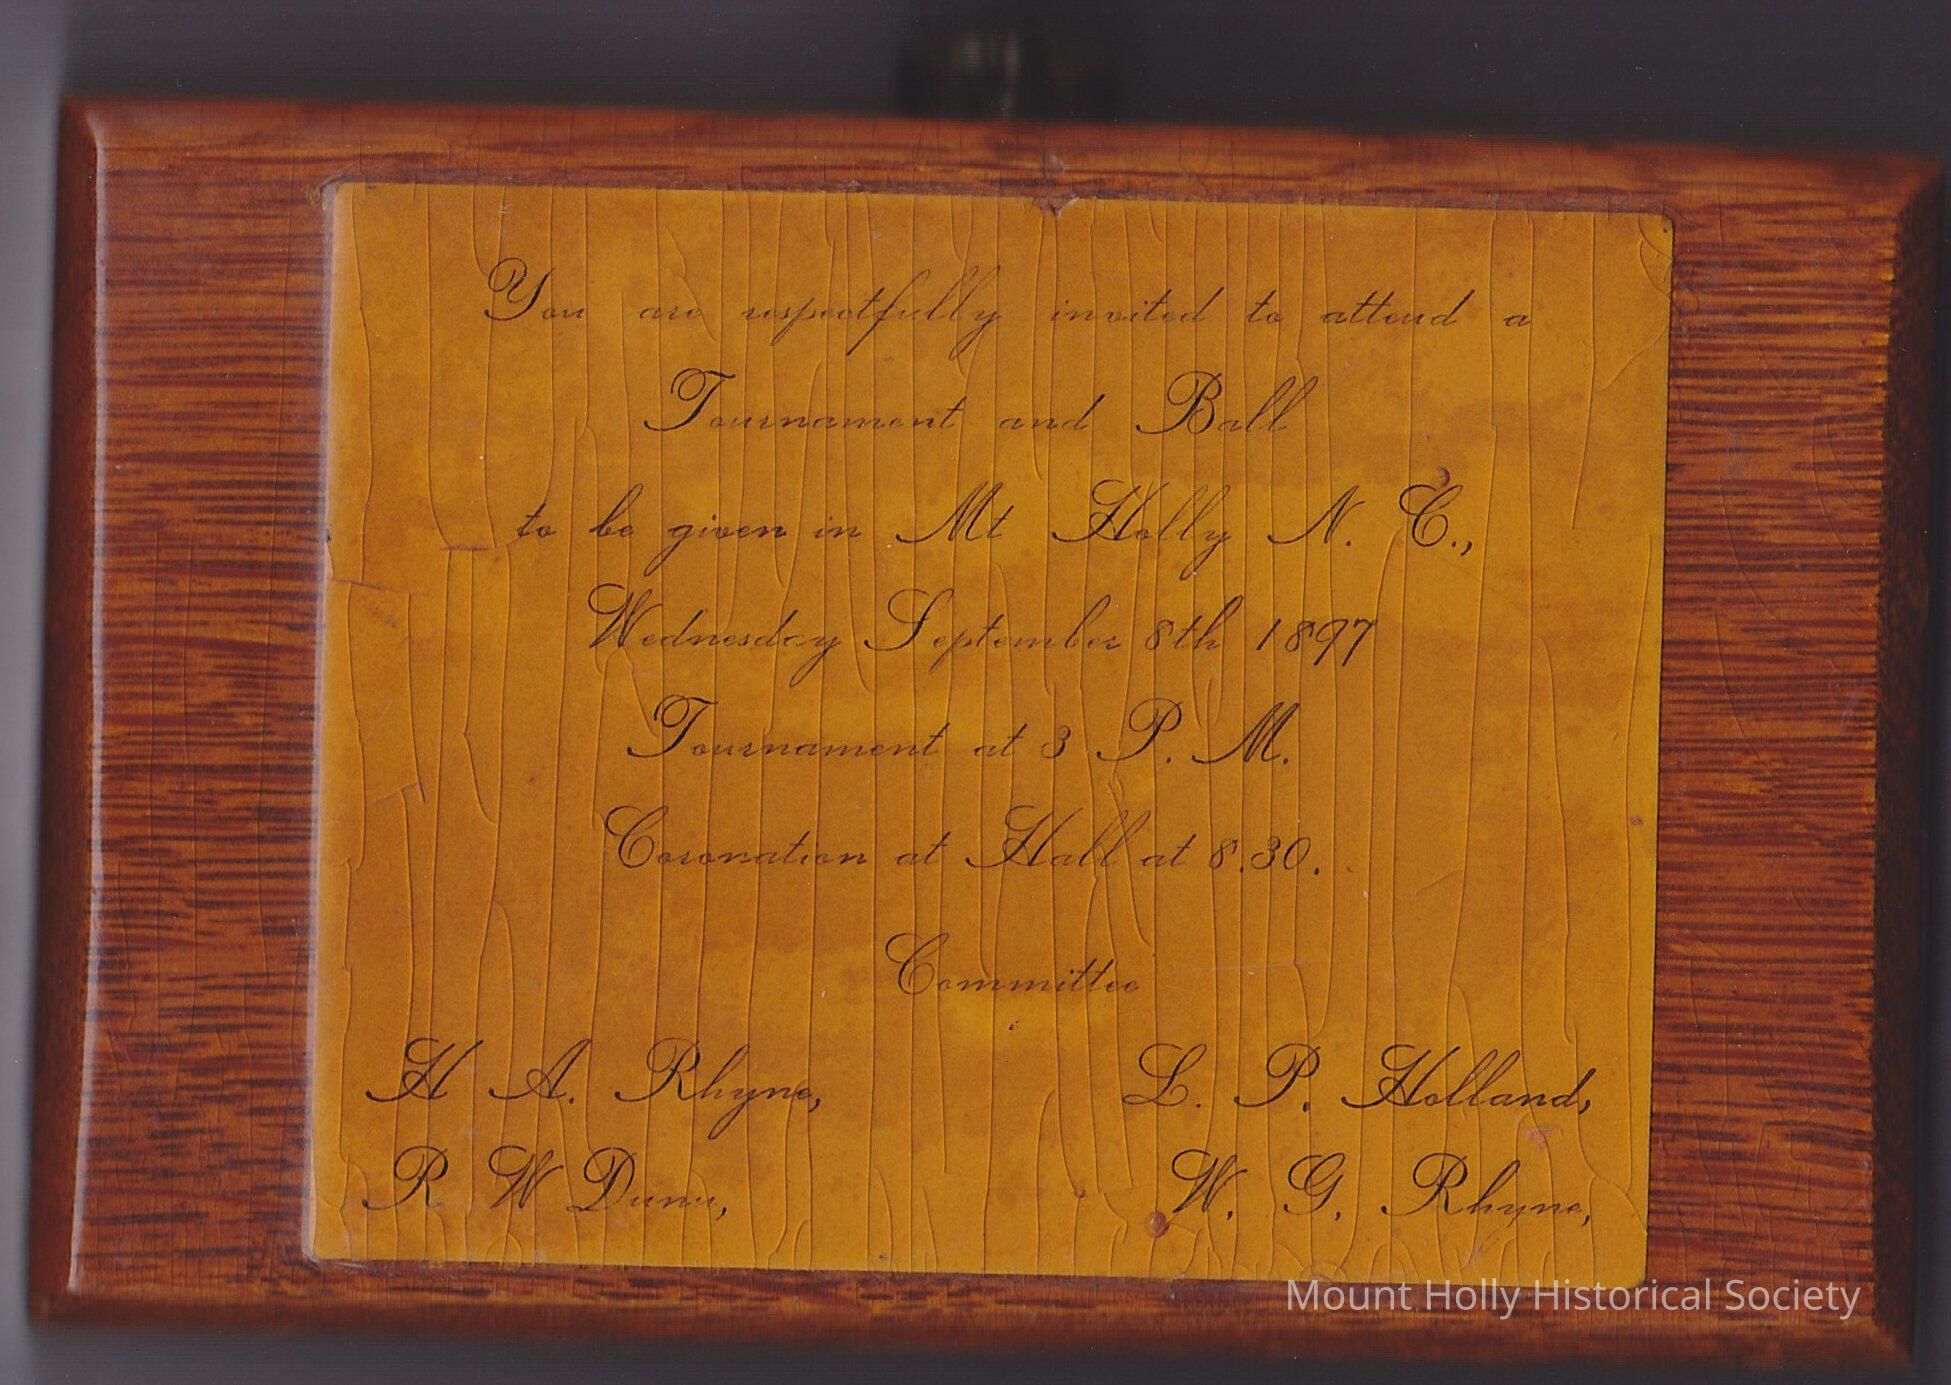 You are respectfully invited to attend a
Tournament and Ball
to be given in Mt Holly N. C.,
Wednesday September 8th 1897
Tournament at 3 P. M.
Coronation at Hall at 8.30.
Committee
H A. Rhyne, L. P. Holland,
R W Dunn, W. G. Rhyne,
Mount Holly Historical Society